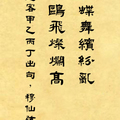 蝶舞繽紛亂
鷗飛燦爛高
客甲乙丙丁出句，穆仙